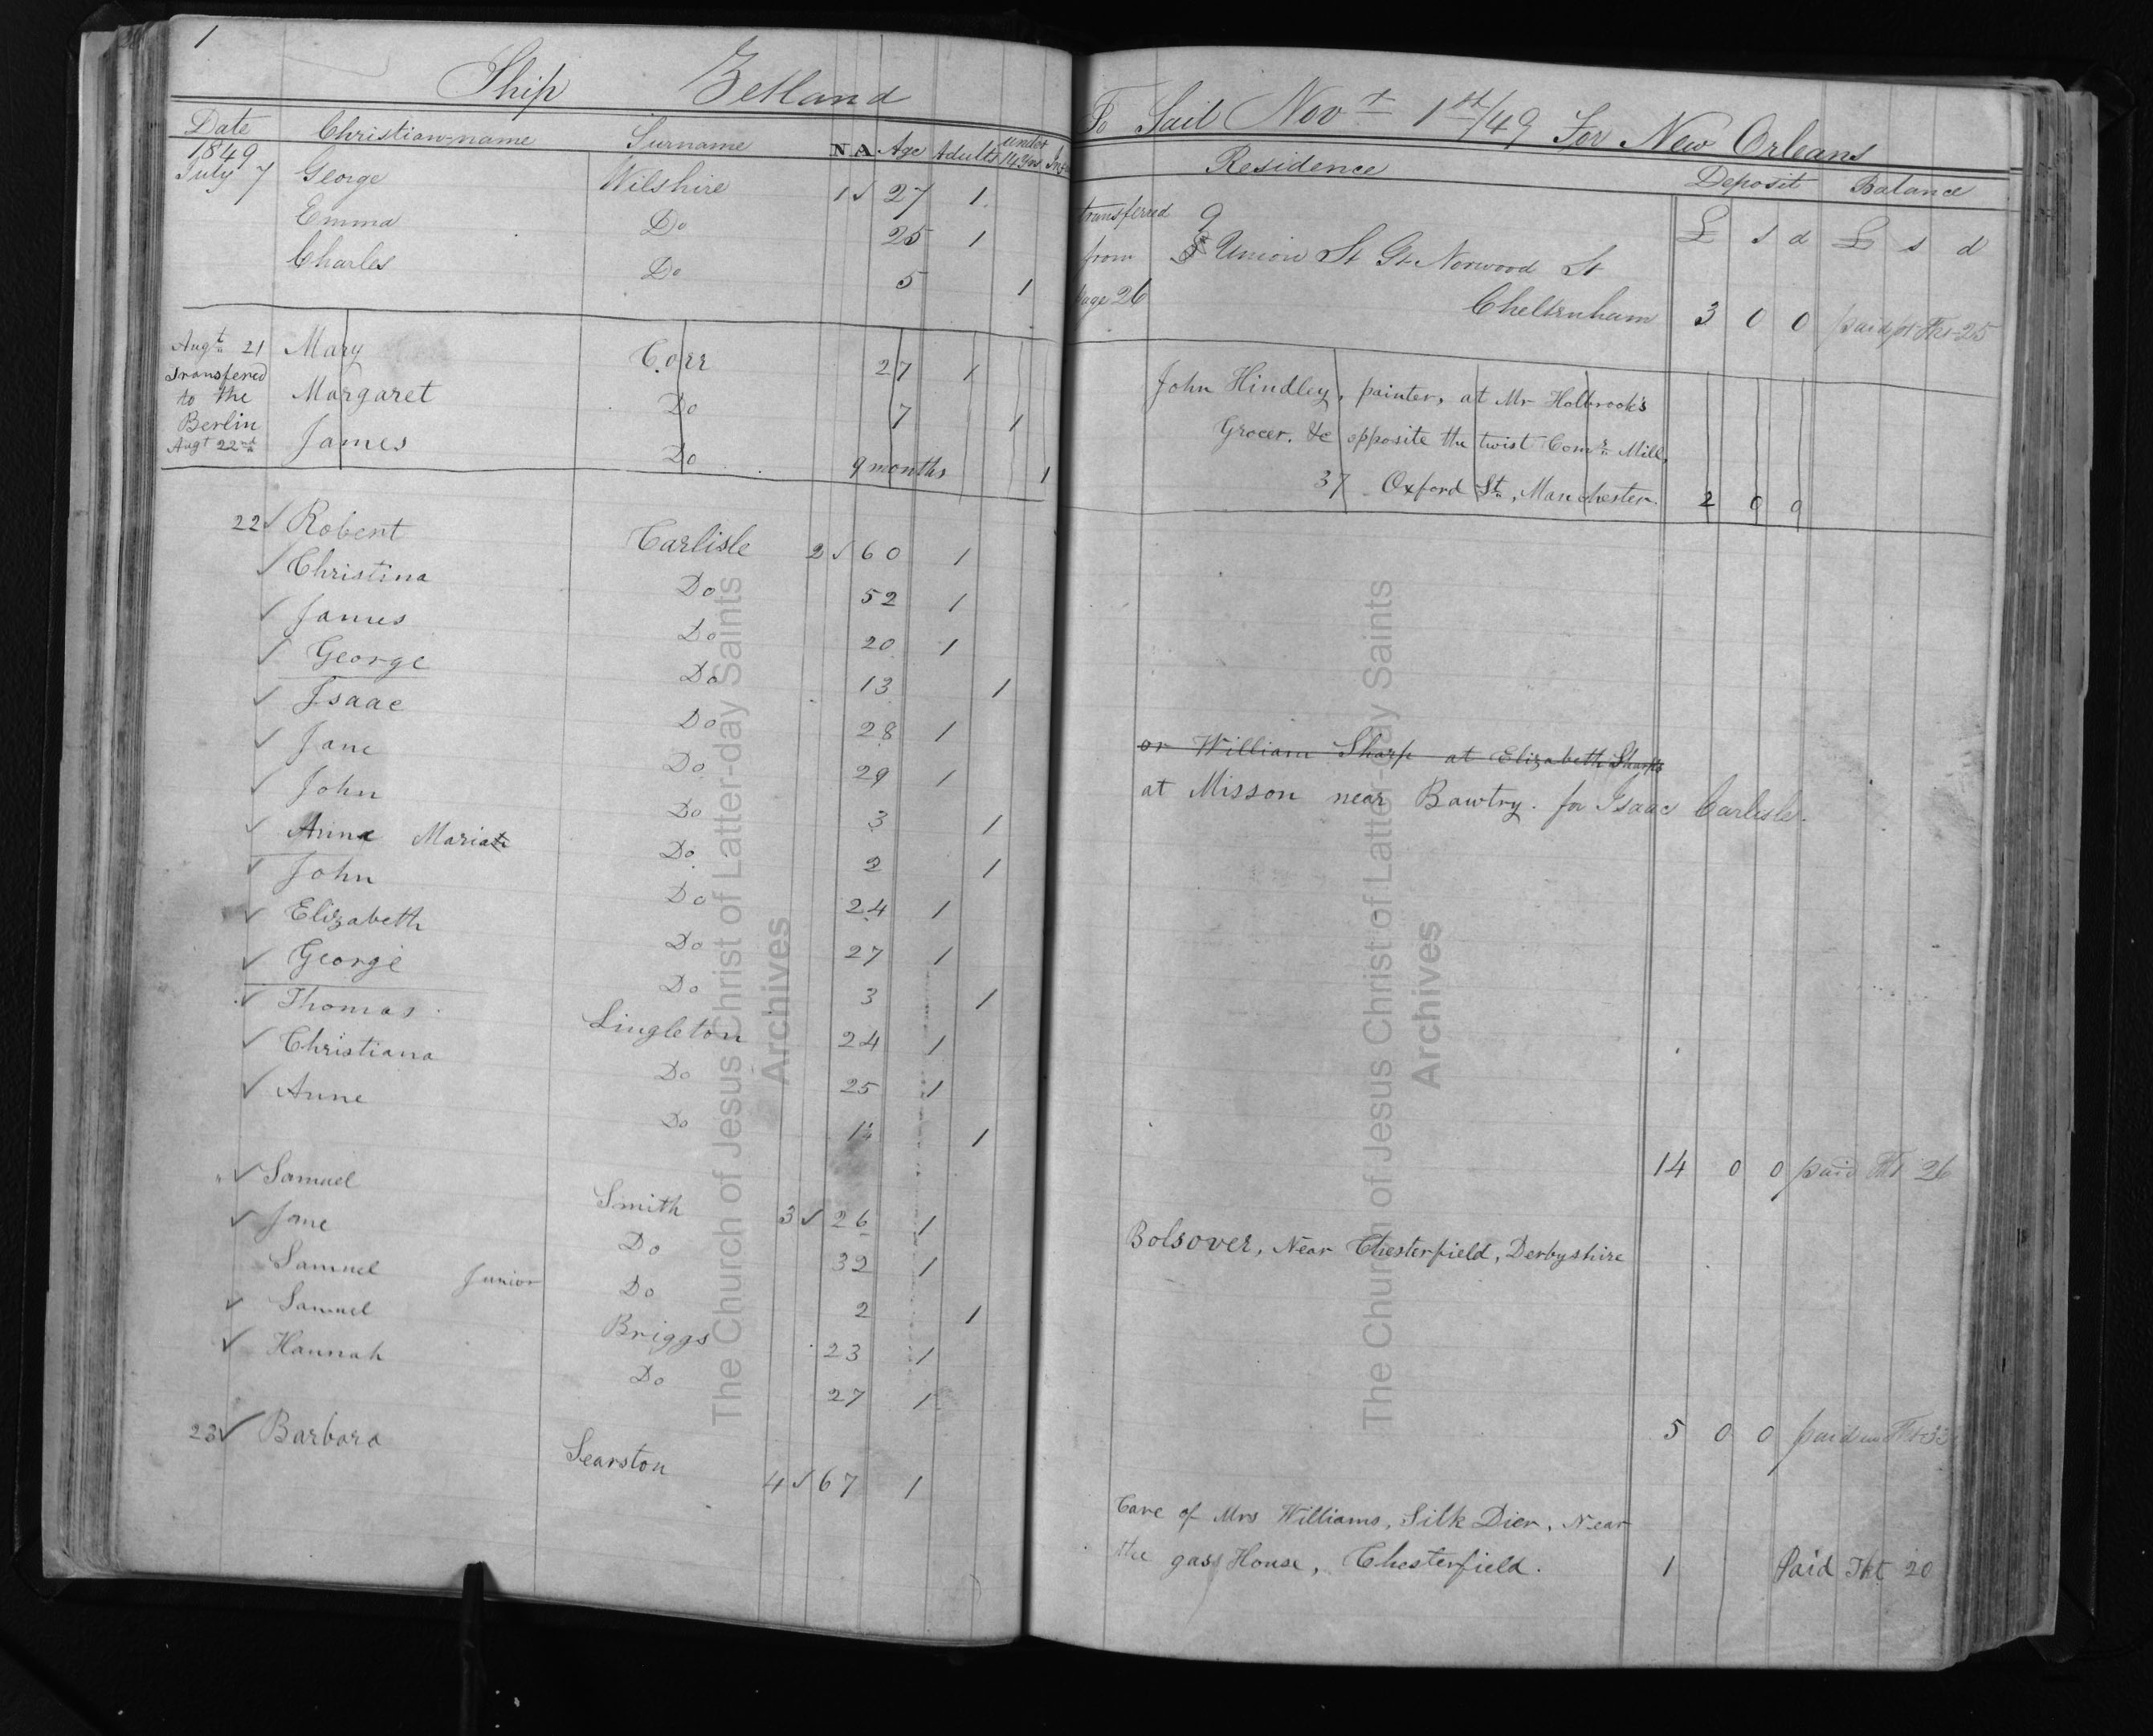 1
Ship Zetland
Date Christian-name Surname N A Age Adults under 14 yrs Inf
1849
July 7 George Wilshire 1 ✓ 27 1
Emma Do 25 1
Charles Do 5 1
Augt 21 Mary Corr 27 1
Transfered
to the Margaret Do 7 1
Berlin
Augt 22nd James Do 9 months 1
22 ✓ Robert Carlisle 2 ✓ 60 1
✓ Christina Do 52 1
✓ James Do 20 1
✓ George Do 13 1
✓ Isaac Do 28 1
✓ Jane Do 29 1
✓ John Do 3 1
✓ Anna Maria Do 2 1
✓ John Do 24 1
✓ Elizabeth Do 27 1
✓ George Do 3 1
✓ Thomas Lingleton 24 1
✓ Christiana Do 25 1
✓ Anne Do 1
" ✓ Samuel Smith 3 ✓ 26 1
✓ Jane Do 32 1
Samuel Junior Do 2 1
✓ Samuel Briggs 23 1
✓ Hannah Do 27 1
23 ✓ Barbara Searston 4 ✓ 67 1
To Sail Novr 1st/49 For New Orleans
Residence Deposit Balance
£ s d £ s d
transferred 9
from Union St Gt Norwood St
page 26 Cheltenham 3 0 0 paid pr Tkt 25
John Hindley, painter, at Mr Holbrook's
Grocer, &c opposite the twist Comn Mill,
37 Oxford St, Manchester. 2 0 0
or William Sharp at Elizabeth Sharps
at Misson near Bawtry. for Isaac Carlisle.
14 0 0 paid Tkt 26
Bolsover, Near Chesterfield, Derbyshire
5 0 0 paid Tkt 33
Care of Mrs Williams, Silk Dier, Near
the gass House, Chesterfield. 1 Paid Tkt 20
The Church of Jesus Christ of Latter-day Saints
Archives
The Church of Jesus Christ of Latter-day Saints
Archives